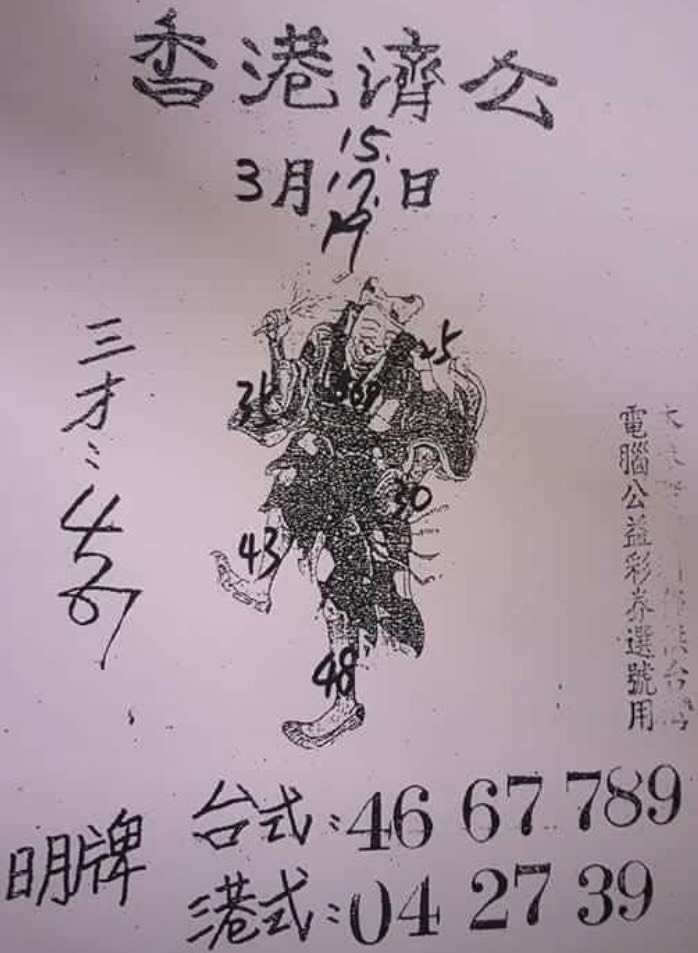 香港濟公
15.
3月17.日
19
三才:467
35
25
369
30
43
48
電腦公益彩券選號用
台灣
明牌
台式:46 67 789
港式:04 27 39